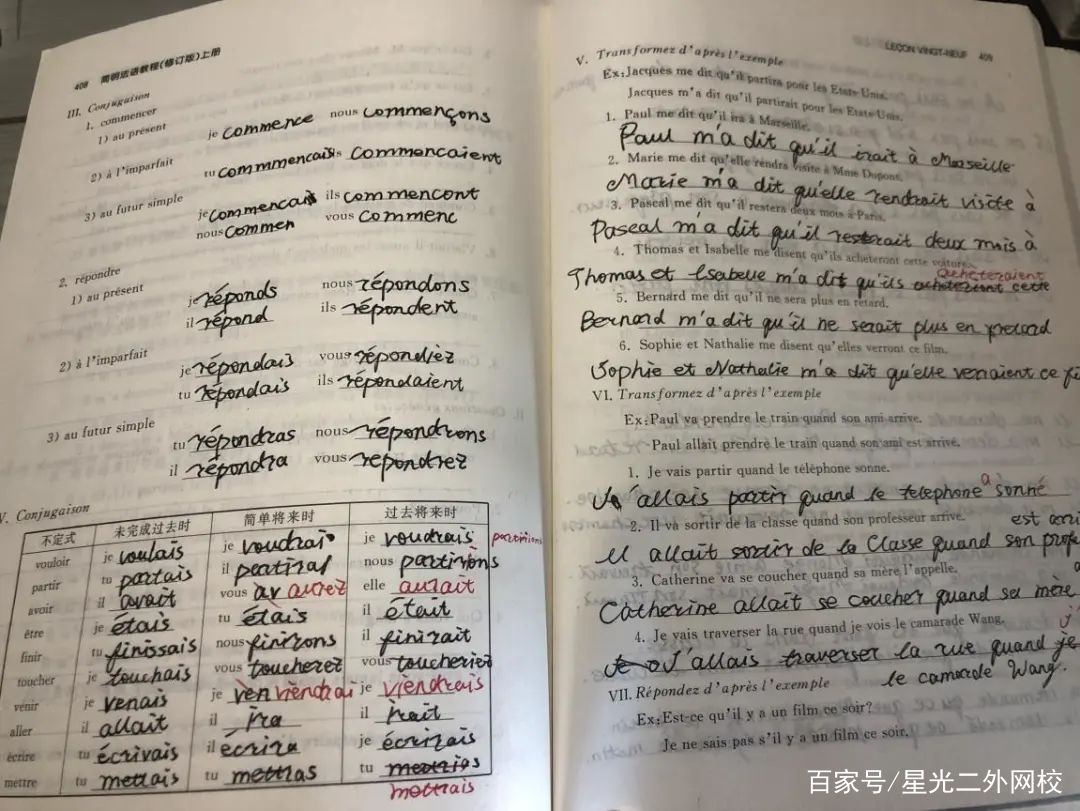 408 简明法语教程(修订版)上册
III. Conjugaison
1. commencer
1) au présent je commence nous commençons
2) à l'imparfait tu commmencais ils commencaient
3) au futur simple je commencais ils commencont
nous commen vous commenc
2. répondre
1) au présent je réponds nous répondons
il répond ils répondent
2) à l'imparfait je répondais vous répondiez
tu répondais ils répondaient
3) au futur simple tu répondras nous répondrons
il répondra vous repondrez
V. Conjugaison
不定式 未完成过去时 简单将来时 过去将来时
vouloir je voulais je voudrai je voudrais
partir tu partais il partiral nous partirions partirions
avoir il avait vous av aurez elle aurait
être je étais tu étais il étaut
finir tu finissais nous finirons il finirait
toucher je touchais vous toucherez vous toucheriez
venir je venais je ven viendrai je viendrais
aller il allait il ira il irait
écrire tu écrivais il écrira je écrirais
mettre tu mettais tu mettras tu
mettrais
LEÇON VINGT-NEUF 409
V. Transformez d'après l'exemple
Ex:Jacques me dit qu'il partira pour les Etats-Unis.
Jacques m'a dit qu'il partirait pour les Etats-Unis.
1. Paul me dit qu'il ira à Marseille.
Paul m'a dit qu'il irait à Marseille
2. Marie me dit qu'elle rendra visite à Mme Dupont.
Marie m'a dit qu'elle rendrait visite à
3. Pascal me dit qu'il restera deux mois à Paris.
Pascal m'a dit qu'il resterait deux mois à
4. Thomas et Isabelle me disent qu'ils acheteront cette voiture.
acheteraient
Thomas et Isabelle m'a dit qu'ils acheteront cette
5. Bernard me dit qu'il ne sera plus en retard.
Bernard m'a dit qu'il ne serait plus en
6. Sophie et Nathalie me disent qu'elles verront ce film.
Sophie et Nathalie m'a dit qu'elle venaient ce fi
VI. Transformez d'après l'exemple
Ex:Paul va prendre le train quand son ami arrive.
Paul allait prendre le train quand son ami est arrivé.
1. Je vais partir quand le téléphone sonne.
J'allais partir quand le telephone a sonné
2. Il va sortir de la classe quand son professeur arrive. est arri
Il allait sortir de la Classe quand son profe
3. Catherine va se coucher quand sa mère l'appelle.
Catherine allait se coucher quand sa mère
4. Je vais traverser la rue quand je vois le camarade Wang.
J'allais traverser la rue quand je
le camarade Wang.
VII. Répondez d'après l'exemple
Ex:Est-ce qu'il y a un film ce soir?
Je ne sais pas s'il y a un film ce soir.
百家号/星光二外网校